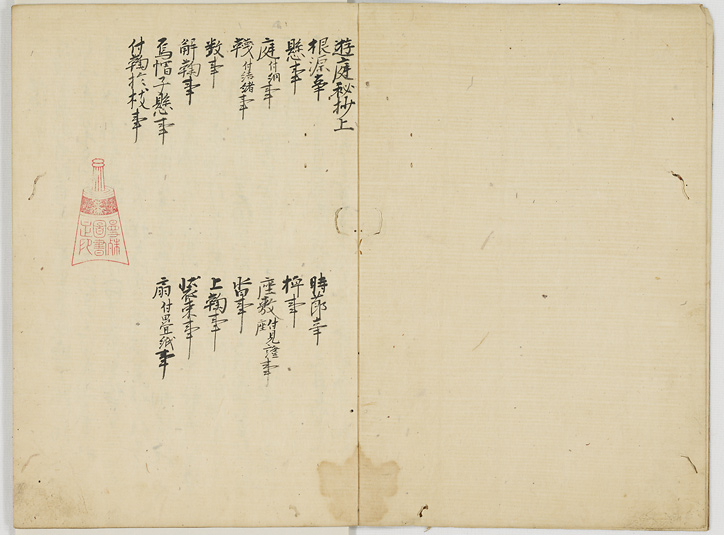 遊庭秘抄上
根源事
懸事
庭付網事
鞠付結緒事
数事
解鞠事
烏帽子懸事
付鞠於枝事
時節事
枰事
座敷付見證座事
沓事
上鞠事
装束事
扇付畳紙事
圖書